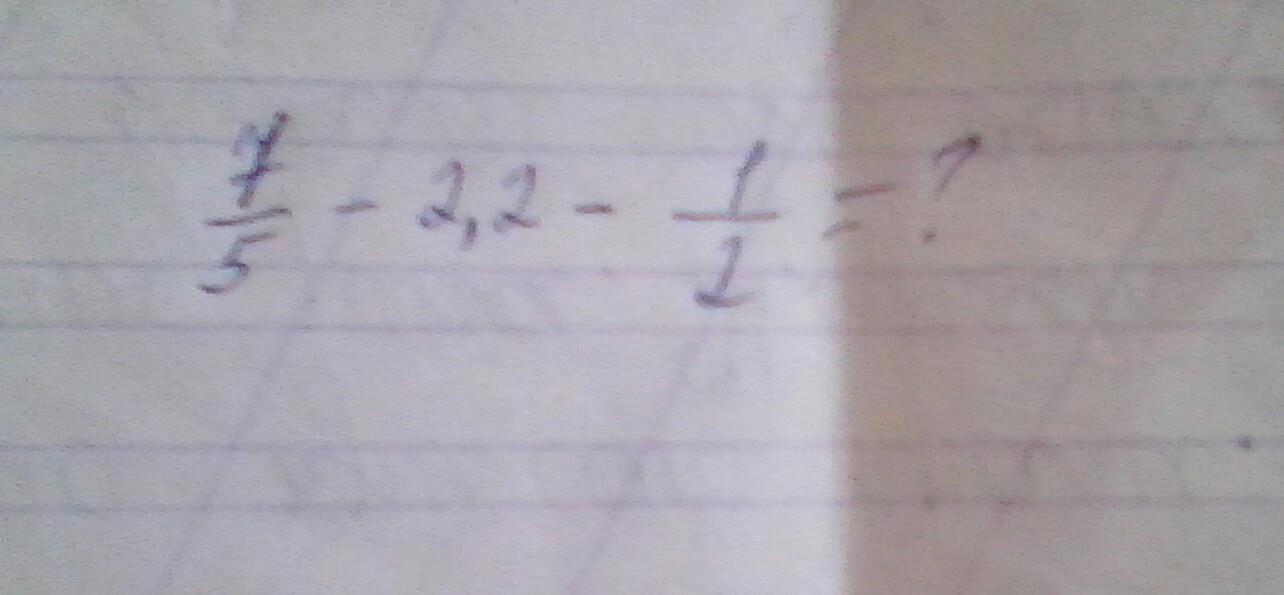 7/5 - 2,2 - 1/2 = ?